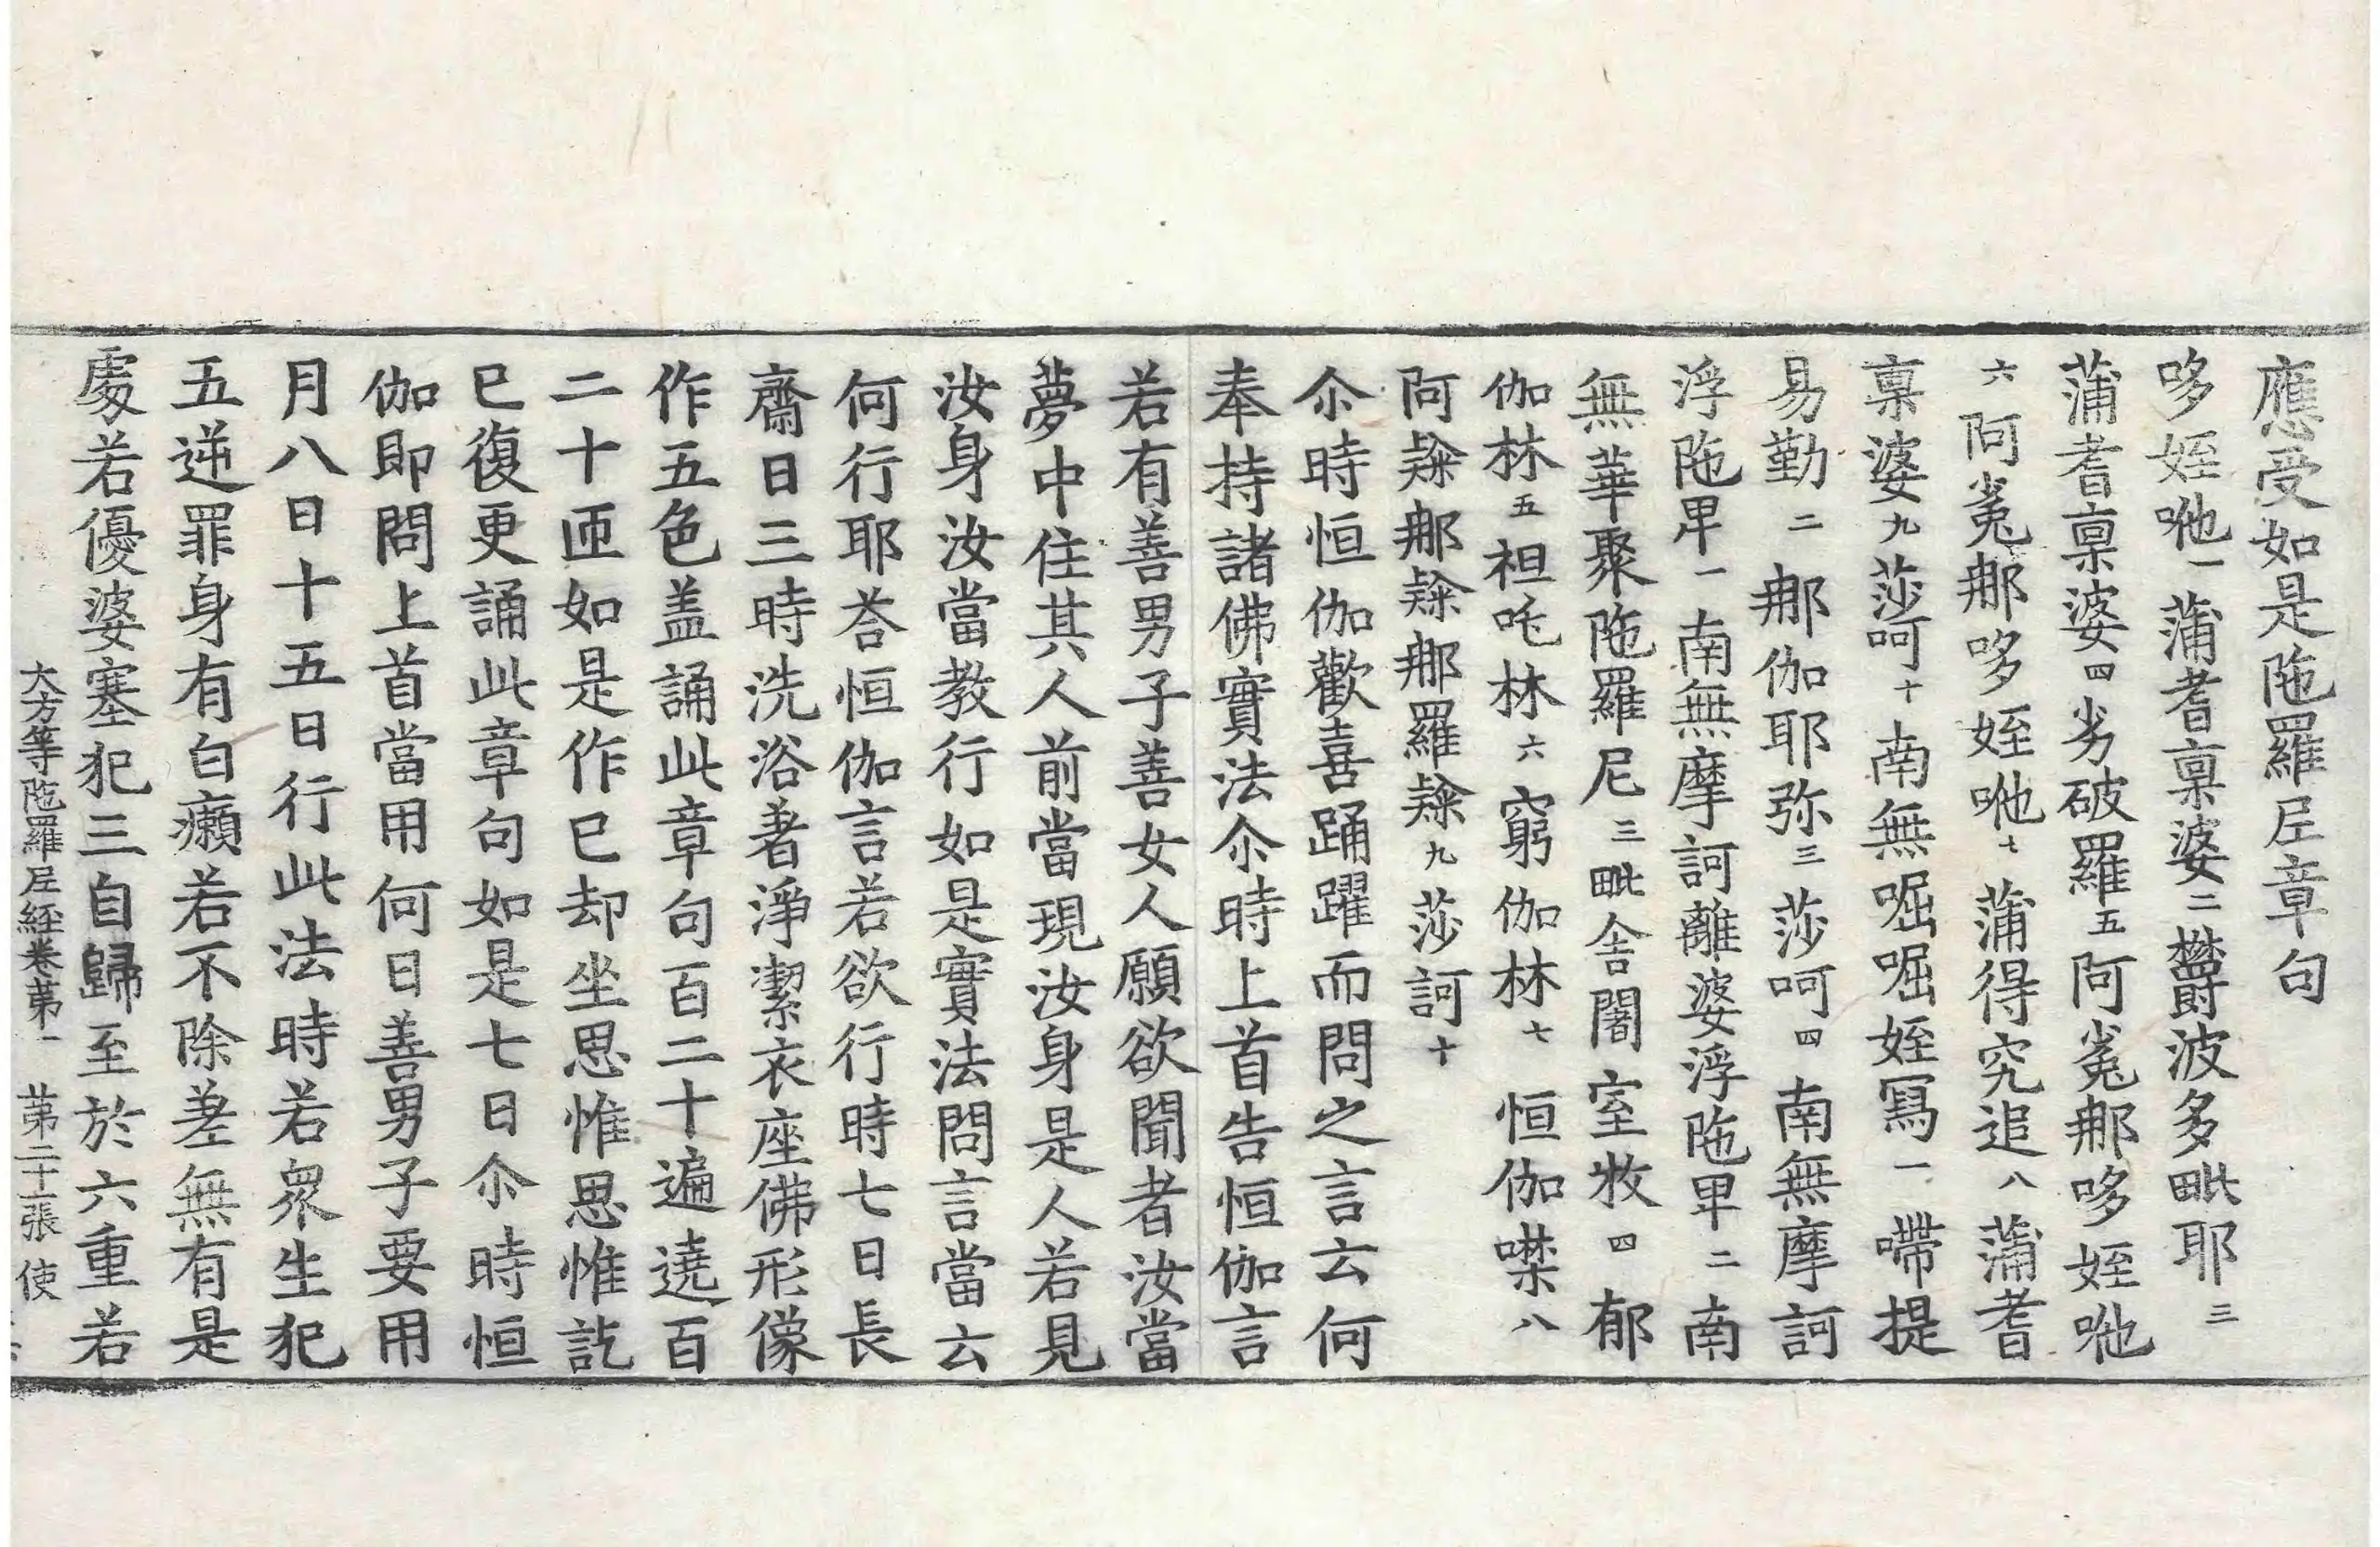 應受如是陁羅𡰱章句
哆姪哋一蒲耆禀婆二欝波多毗耶三
蒲耆禀婆四劣破羅五阿㝹那哆姪哋
六阿㝹那哆姪哋七蒲得究追八蒲耆
禀婆九莎呵十南無崛崛姪冩一㗣提
易勤二那伽耶弥三莎呵四南無摩訶
浮陁畀一南無摩訶離婆浮陁畀二南
無華聚陁羅尼三毗舍闍室牧四郁
伽林五袒吒林六窮伽林七恒伽噤八
阿𨽻那𨽻那羅𨽻九莎訶十
尒時恒伽歡喜踊躍而問之言云何
奉持諸佛實法尒時上首告恒伽言
若有善男子善女人願欲聞者汝當
夢中住其人前當現汝身是人若見
汝身汝當教行如是實法問言當云
何行耶荅恒伽言若欲行時七日長
齋日三時洗浴著淨潔衣座佛形像
作五色盖誦此章句百二十遍遶百
二十匝如是作已却坐思惟思惟訖
已復更誦此章句如是七日尒時恒
伽即問上首當用何日善男子要用
月八日十五日行此法時若衆生犯
五逆罪身有白癩若不除差無有是
處若優婆塞犯三自歸至於六重若
大方等陁羅𡰱經卷第一 第二十張 使